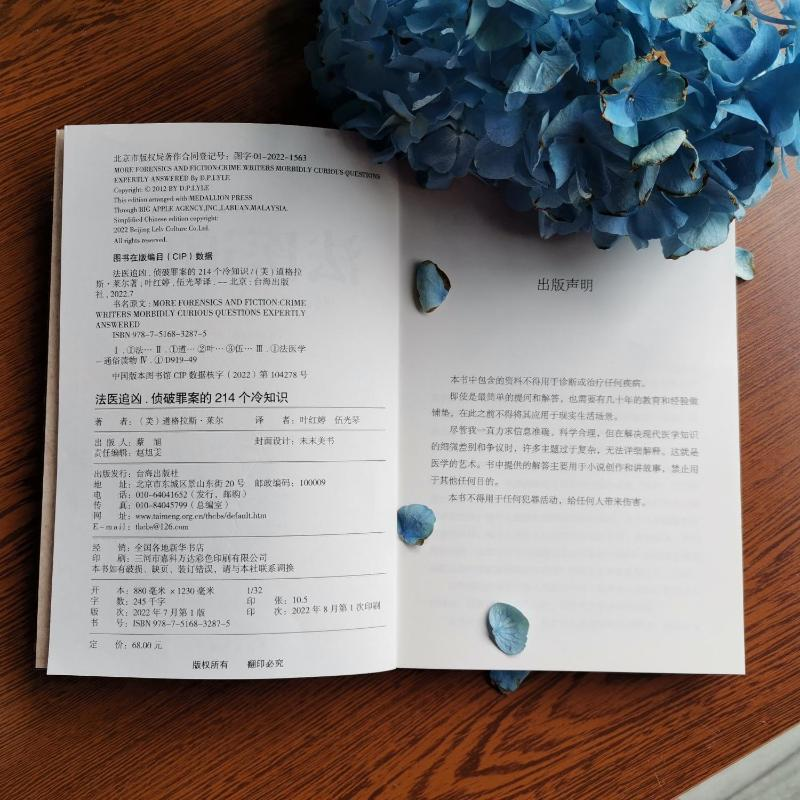 北京市版权局著作合同登记号：图字-01-2022-1563
MORE FORENSICS AND FICTION:CRIME WRITERS MORBIDLY CURIOUS QUESTIONS
EXPERTLY ANSWERED By D.P.LYLE
Copyright: © 2012 BY D.P.LYLE
This edition arranged with MEDALLION PRESS
Through BIG APPLE AGENCY,INC.,LABUAN,MALAYSIA.
Simplified Chinese edition copyright:
2022 Beijing Lelv Culture Co.Ltd.
All rights reserved.
图书在版编目（CIP）数据
法医追凶．侦破罪案的 214 个冷知识 /（美）道格拉
斯·莱尔著；叶红婷，伍光琴译．-- 北京：台海出版
社，2022.7
书名原文：MORE FORENSICS AND FICTION:CRIME
WRITERS MORBIDLY CURIOUS QUESTIONS EXPERTLY
ANSWERED
ISBN 978-7-5168-3287-5
Ⅰ．①法… Ⅱ．①道… ②叶… ③伍… Ⅲ．①法医学
－通俗读物 Ⅳ．①D919-49
中国版本图书馆 CIP 数据核字（2022）第 104278 号
法医追凶．侦破罪案的 214 个冷知识
著　　者：（美）道格拉斯·莱尔　　译　　者：叶红婷　伍光琴
出 版 人：蔡　旭　　封面设计：末末美书
责任编辑：赵旭雯
出版发行：台海出版社
地　　址：北京市东城区景山东街 20 号　邮政编码：100009
电　　话：010-64041652（发行，邮购）
传　　真：010-84045799（总编室）
网　　址：www.taimeng.org.cn/thcbs/default.htm
E－mail：thcbs@126.com
经　　销：全国各地新华书店
印　　刷：三河市嘉科万达彩色印刷有限公司
本书如有破损、缺页、装订错误，请与本社联系调换
开　　本：880 毫米 ×1230 毫米　　1/32
字　　数：245 千字　　印　　张：10.5
版　　次：2022 年 7 月第 1 版　　印　　次：2022 年 8 月第 1 次印刷
书　　号：ISBN 978-7-5168-3287-5
定　　价：68.00 元
版权所有　　翻印必究
出版声明
本书中包含的资料不得用于诊断或治疗任何疾病。
即使是最简单的提问和解答，也需要有几十年的教育和经验做
铺垫。在此之前不得将其应用于现实生活场景。
尽管我一直力求信息准确、科学合理，但在解决现代医学知识
的细微差别和争议时，许多主题过于复杂，无法详细解释。这就是
医学的艺术。书中提供的解答主要用于小说创作和讲故事，禁止用
于其他任何目的。
本书不得用于任何犯罪活动，给任何人带来伤害。